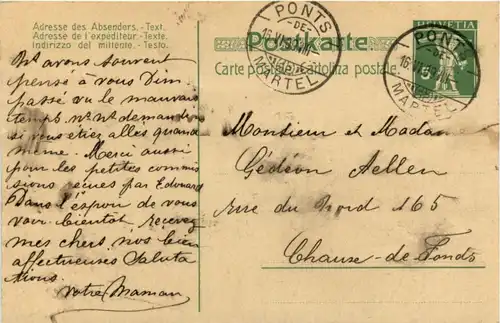 Adresse des Absenders. -Text.
Adresse de l'expéditeur. -Texte.
Indirizzo del mittente. -Testo.
Postkarte
Carte postale. Cartolina postale.
HELVETIA
5
PONTS
-DE-
16 VI
MARTEL
PONTS
-DE-
16 VI
MARTEL
Ns avons souvent
pensé à vous Dim.
passé vu le mauvais
temps ns ns demandions
si vous étiez allés quand
même. Merci aussi
pour les petites commis
sions reçues par Edouard
Dans l'espoir de vous
voir bientôt recevez
mes chers, nos bien
affectueuses Saluta
tions.
votre Maman
Monsieur et Madame
Gédéon Aellen
rue du Nord 165
Chaux-de-Fonds